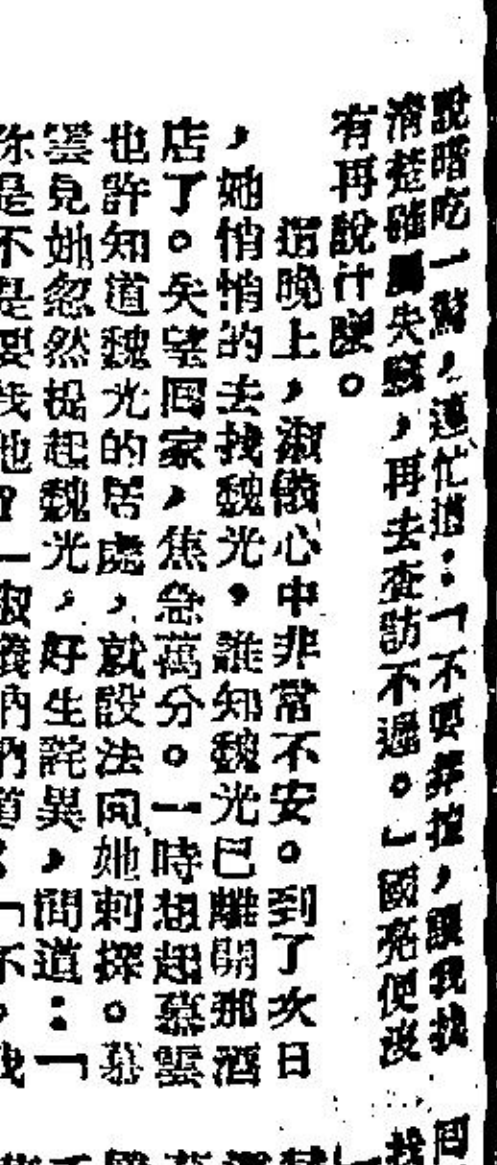 說暗吃一驚，連忙道：「不要報捕，讓我找
清楚確屬失竊，再去查訪不遲。」國亮便沒
有再說什麼。
這晚上，淑儀心中非常不安。到了次日
，她悄悄的去找魏光，誰知魏光已離開那酒
店了。失望回家，焦急萬分。一時想起慕雲
也許知道魏光的居處，就設法向她刺探。慕
雲見她忽然提起魏光，好生詫異，問道：「
你是不是要找他？」淑儀訥訥道：「不。我